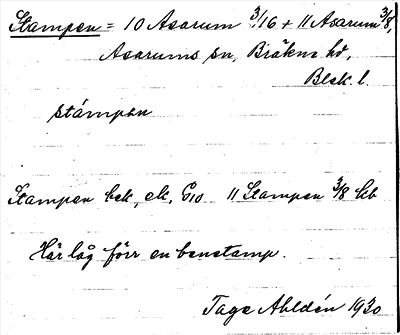 Stampen = 10 Asarum 3/16 + 11 Asarum 3/8,
Asarums sn, Bräkne hd,
Blek. l.
stámpen
Stampen bek, ek, G10 11 Stampen 3/8 kb
Här låg förr en benstamp.
Tage Ahldén 1930